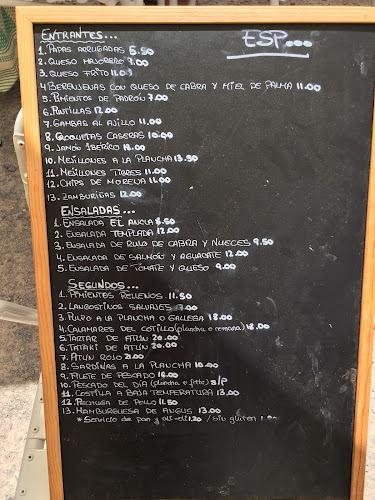 ENTRANTES...
ESP...
1. PAPAS ARRUGADAS 5.50
2. QUESO MAJORERO 9.00
3. QUESO FRITO 11.00
4 BERENJENAS CON QUESO DE CABRA Y MIEL DE PALMA 11.00
5. PIMIENTOS DE PADRÓN 7.00
6. PUNTILLAS 12.00
7. GAMBAS AL AJILLO 11.00
8. CROQUETAS CASERAS 10.00
9. JAMÓN IBÉRICO 18.00
10. MEJILLONES A LA PLANCHA 13.50
11. MEJILLONES TIGRES 11.00
12. CHIPS DE MORENA 11.00
13. ZAMBURIÑAS 12.00
ENSALADAS...
1. ENSALADA EL ANCLA 8.50
2. ENSALADA TEMPLADA 12.00
3. ENSALADA DE RULO DE CABRA Y NUECES 9.50
4. ENSALADA DE SALMÓN Y AGUACATE 12.00
5. ENSALADA DE TOMATE Y QUESO 9.00
SEGUNDOS...
1. PIMIENTOS RELLENOS. 11.50
2. LANGOSTINOS SALVAJES 17.00
3. PULPO A LA PLANCHA O GALLEGA 18.00
4. CALAMARES DEL COTILLO (plancha o romana) 18.00
5. TARTAR DE ATÚN 20.00
6. TATAKI DE ATÚN 20.00
7. ATÚN ROJO 21.00
8. SARDINAS A LA PLANCHA 10.00
9. FILETE DE PESCADO 16.00
10. PESCADO DEL DÍA (plancha o frito) S/P
11. COSTILLA A BAJA TEMPERATURA 13.00
12. PECHUGA DE POLLO 11.50
13. HAMBURGUESA DE ANGUS 13.00
* Servicio de pan y ali-oli 1.20 / sin gluten